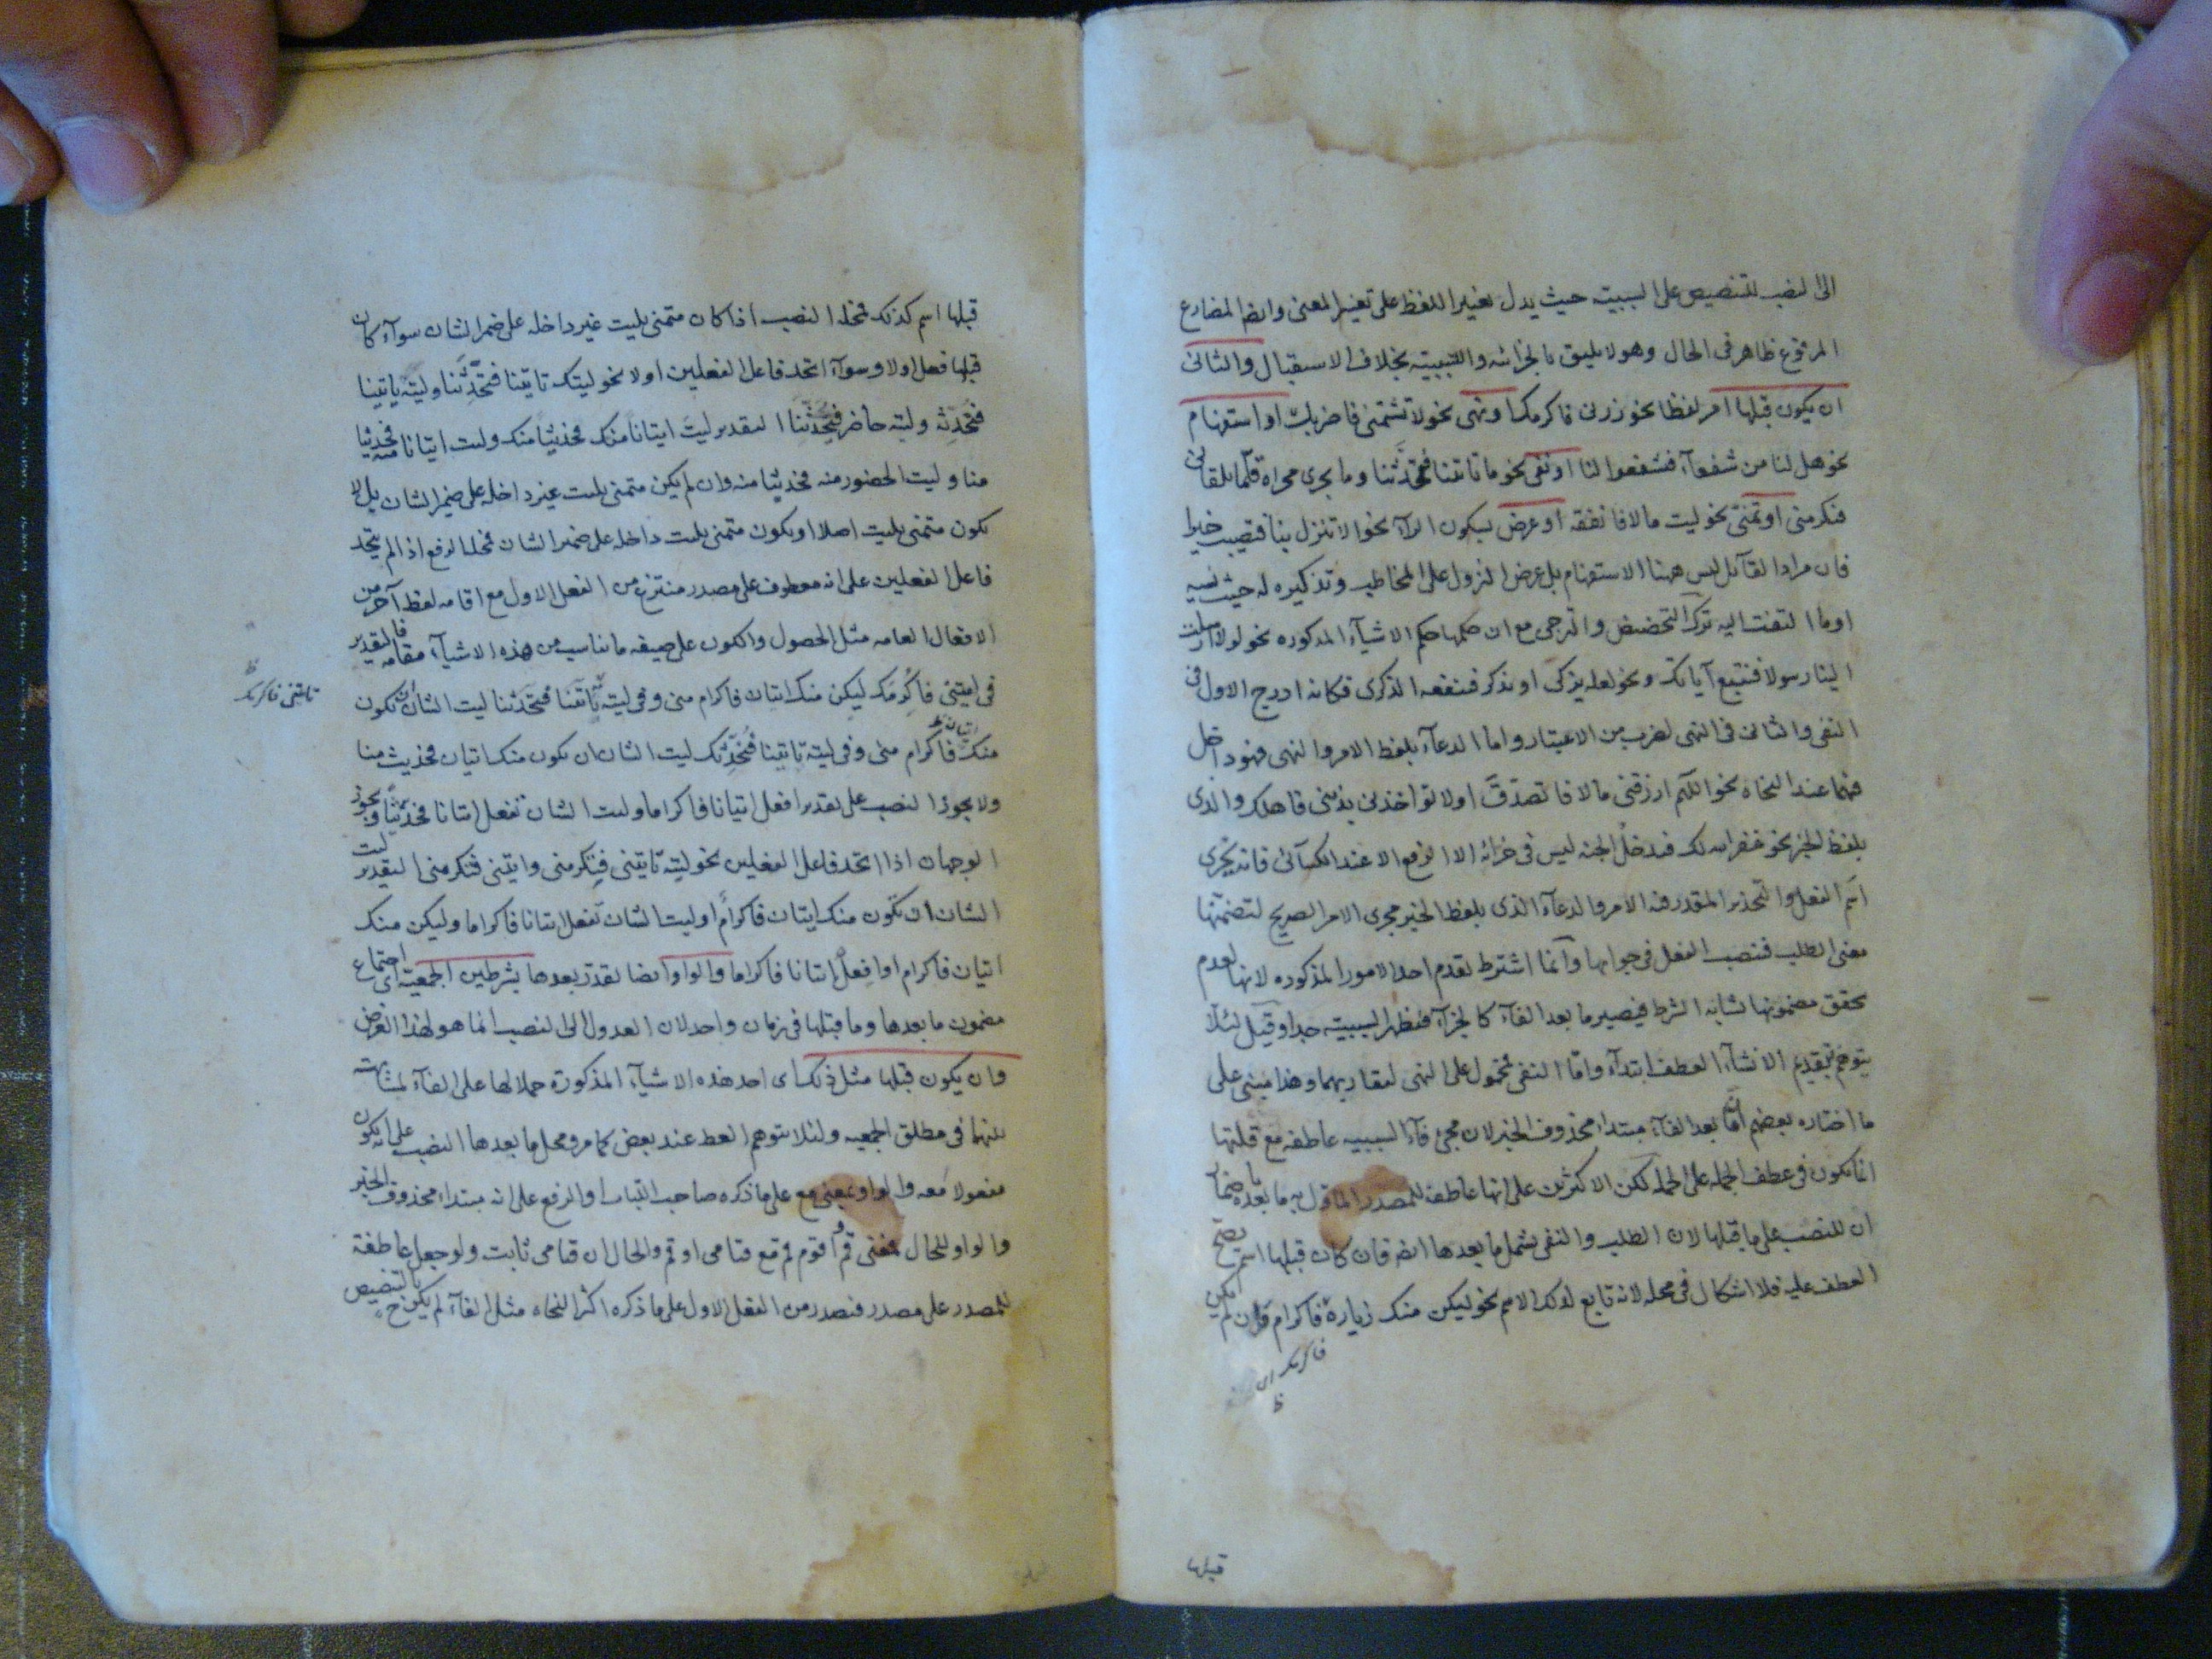 الى النصب للتنصيص على السببيته حيث يدل تغيير اللفظ على تغيير المعنى وايضا المضارع
المرفوع ظاهر فى الحال وهو لا يليق بالجزائه والسببيته بخلاف الاستقبال والثانى
ان يكون قبلها امر لفظا نحو زرنى فاكرمك او نهى نحو لا تشتمنى فاضربك او استفهام
نحو هل لنا من شفعآء فشفعوا لنا او نفى نحو ما تاتينا فتحدّثنا وما يجرى مجراه قلّما تلقانى
فتكرمنى او تمنّى نحو ليت مالا فانفقه او عرض بسكون الرآء نحو الا تنزل بنا فتصيب خيرا
فان مراد القآئل ليس ههنا الاستفهام بل عرض النزول على المخاطب وتذكيره له حيث نسيه
او ما التفت اليه ترك التحضيض والترجى مع ان حكمها حكم الاشيآء المذكوره نحو لولا ارسلت
الينا رسولا فنتبع آياتك ونحو لعله يزكى او يذكر فتنفعه الذكرى فكانه ادرج الاول فى
النفى والثانى فى النهى لضرب من الاعتبار واما الدعآء بلفظ الامر والنهى فهو داخل
فيهما عند النحاه نحو اللهم ارزقنى مالا فاتصدّقَ او لا تؤاخذنى بذنبى فاهلك والذى
بلفظ الخبر نحو غفر الله لك فيدخلُ الجنه ليس فى جزائه الا الرفع الا عند الكسآئى فانه يجرى
اسم الفعل والتحذير المقدر فيه الامر والدعآء الذى بلفظ الخبر مجرى الامر الصريح لتضمنها
معنى الطلب فتنصب الفعل فى جوابها وانّما اشترط تقدم احد الامور المذكوره لانها لعدم
تحقق مضمونها تشابه الشرط فيصير ما بعد الفآء كالجزآء فتظهر السببيته جدا وقيل لئلا
يتوهم بتقديم الانشآء العطف ابتدآء وامّا النفى فمحمول على النهى لتقاربهما وهذا مبنى على
ما اختاره بعضهم ان ما بعد الفآء مبتداء محذوف الخبر لان مجئ فآء السببيه عاطفه مع قلتها
انما يكون فى عطف الجمله على الجمله لكن الاكثرين على انها عاطفة للمصدر الماؤل به ما بعده باضمار
ان للنصب على ما قبلها لان الطلب والنفى يشمل ما بعدها ايضا فان كان قبلها اسم يصح
العطف عليه فلا اشكال فى محله لانه تابع لذلك الاسم نحو ليكن منك زيارة فاكرام وان لم يكن
فاكرمك اى
ظ
قبلها
قبلها اسم كذلك فمحله النصب اذا كان متمنى بليت غير داخله على ضمير الشان سوآء كان
قبلها فعل اولا وسوآء اتحد فاعل الفعلين اولا نحو ليتك تاتينا فتحدّثنا وليته ياتينا
فنحدثه وليته حاضر فيحدثنا التقدير ليت ايتانا منك فحديثا منك وليت ايتانا منه فحديثا
منا وليت الحضور منه فحديثا منه وان لم يكن متمنى بليت غير داخله على ضمير الشان بل لا
يكون متمنى بليت اصلا او يكون متمنى بليت داخله على ضمير الشان فمحله الرفع اذا لم يتحد
فاعل الفعلين على انه معطوف على مصدر منتزع من الفعل الاول مع اقامه لفظ آخر من
الافعال العامه مثل الحصول والكون على صيغه ما تناسب من هذه الاشيآء مقامه فالتقدير
فى ايتنى فاكرمك ليكن منك اتيان فاكرام منى وفى ليته تاتينا فتحدثنا ليت الشان ان يكون
تاتينى فاكرمك
ظ
منك فاكرام منى وفى ليته تاتينا فنحدثك ليت الشان ان يكون منك اتيان فحديث منا
ولا يجوز النصب على تقدير افعل اتيانا فاكراما وليت الشان تفعل ايتانا فحديثا ويجوز
الوجهان اذا اتحد فاعل الفعلين نحو ليته تاتينى فتكرمنى وايتنى فتكرمنى التقدير ليت
الشان ان يكون منك ايتان فاكرام او ليت الشان تفعل ايتانا فاكراما وليكن منك
اتيان فاكرام او افعل ايتانا فاكراما والواو ايضا تقدر بعدها بشرطين الجمعيته اى اجتماع
مضمون ما بعدها وما قبلها فى زمان واحد لان العدول الى النصب انما هو لهذا الغرض
وان يكون قبلها مثل ذلك اى احد هذه الاشيآء المذكورة حملا لها على الفآء لمشابهته
بينهما فى مطلق الجمعيه ولئلا يتوهم العطف عند بعض كما مر ومحل ما بعدها النصب على انه يكون
مفعولا معه والواو بمعنى مع على ما ذكره صاحب اللباب او الرفع على انه مبتداء محذوف الخبر
والواو للحال فمعنى قم واقوم قم مع قيامى او قم والحال ان قيامى ثابت ولو جعل عاطفة
للمصدر على مصدر متصدر من الفعل الاول على ما ذكره اكثر النحاه مثل الفآء لم يكن ح بالتنصيص